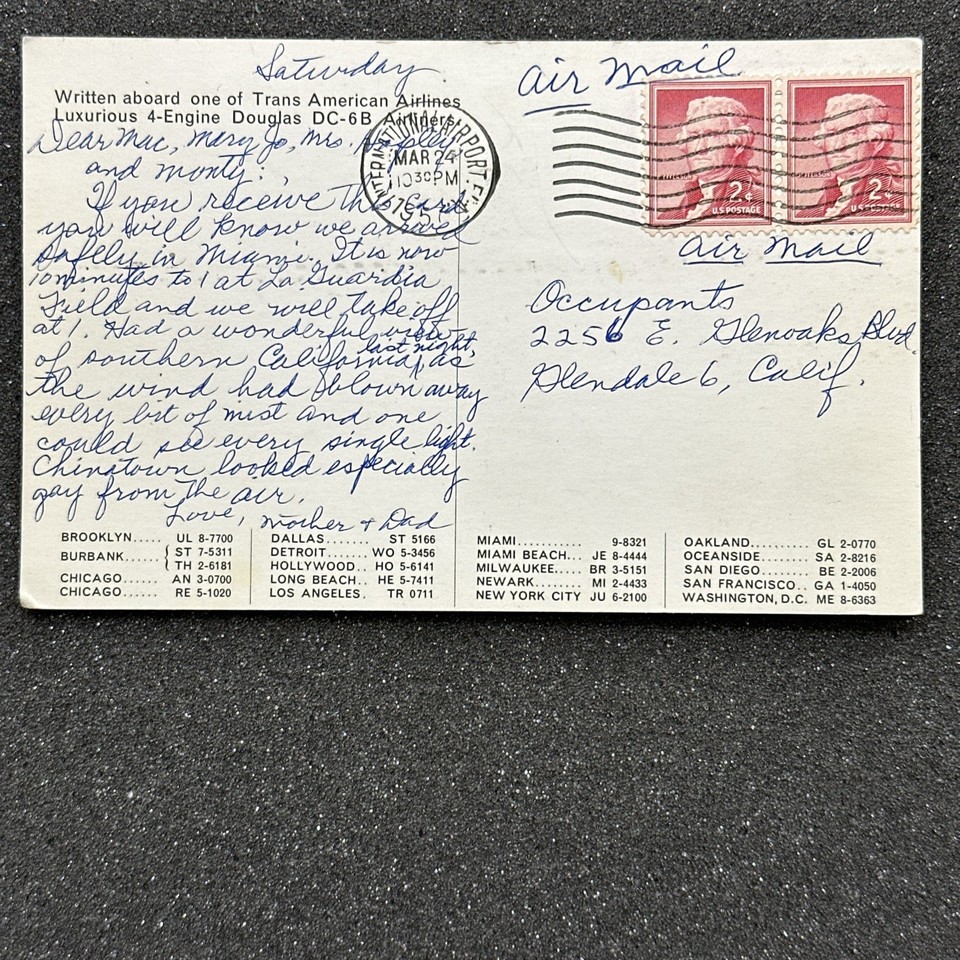 Saturday
Written aboard one of Trans American Airlines
Luxurious 4-Engine Douglas DC-6B Airliners
Dear Mac, Mary Jo, Mrs.
and Monty:
If you receive this card
you will know we arrived
safely in Miami. It is now
10 minutes to 1 at La Guardia
Field and we will take off
at 1. Had a wonderful view
of southern California last night, as
the wind had blown away
every bit of mist and one
could see every single light.
Chinatown looked especially
gay from the air.
Love, Mother & Dad
Air Mail
INTERNATIONAL AIRPORT
MAR 24
10 30 PM
2¢
U.S. POSTAGE
2¢
U.S. POSTAGE
Air Mail
Occupants
2256 E. Glenoaks Blvd.
Glendale 6, Calif.
BROOKLYN..... UL 8-7700
BURBANK...... { ST 7-5311
TH 2-6181
CHICAGO...... AN 3-0700
CHICAGO...... RE 5-1020
DALLAS....... ST 5166
DETROIT...... WO 5-3456
HOLLYWOOD.. HO 5-6141
LONG BEACH.. HE 5-7411
LOS ANGELES. TR 0711
MIAMI............ 9-8321
MIAMI BEACH... JE 8-4444
MILWAUKEE..... BR 3-5151
NEWARK........ MI 2-4433
NEW YORK CITY JU 6-2100
OAKLAND.......... GL 2-0770
OCEANSIDE....... SA 2-8216
SAN DIEGO....... BE 2-2006
SAN FRANCISCO.. GA 1-4050
WASHINGTON, D.C. ME 8-6363